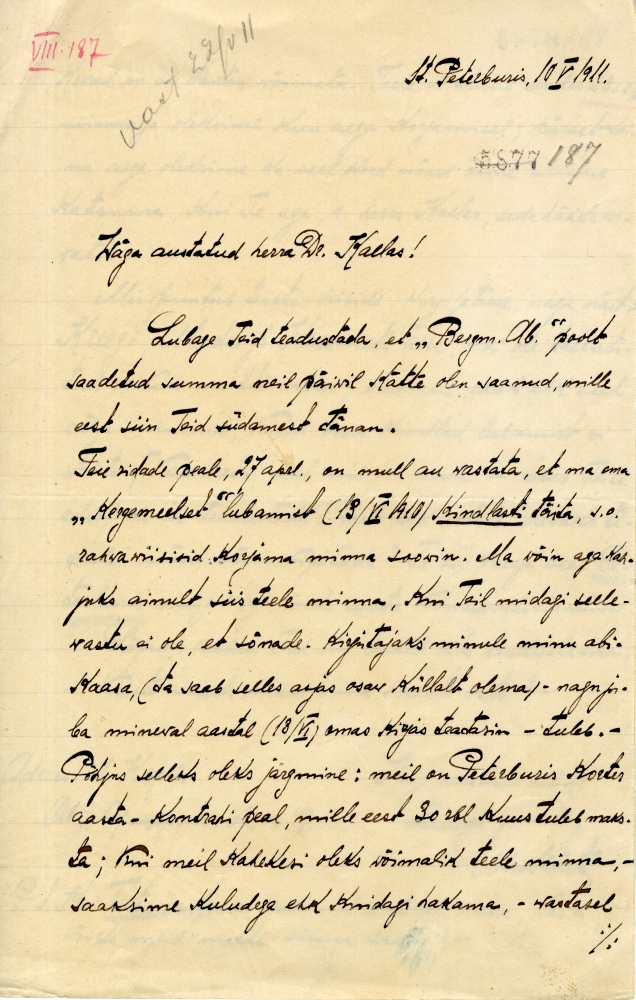 VIII. 187
vast 22/VII
St. Peterburis, 10 V 1911.
5877 187
Wäga austatud herra Dr. Kallas!
Lubage Teid teadustada, et „Bergm. Ab." poolt
saadetud summa neil päivil Kätte olen saanud, mille
eest siin Teid südamest tänan.
Teie ridade peale, 27 aprl., on mull au wastata, et ma oma
„Kergemeelset" lubamist (13/VI 1910) Kindlasti täita, s.o.
rahwawiisisid Korjama minna soowin. Ma wõin aga Kah-
juks ainult siis teele minna, Kui Teil midagi selle-
wastu ei ole, et sõnade-Kirjutajaks minule minu abi-
Kaasa, (ta saab selles asjas osaw Küllalt olema) - nagu ju-
ba minewal aastal (13/VI) omas Kirjas teatasin - tuleb. -
Põhjus selleks oleks järgmine: meil on Peterburis Korter
aasta-Kontrahi peal, mille eest 30 rbl Kuus tuleb maks-
ta; Kui meil Kahekesi oleks wõimalik teele minna, -
saaksime Kuludega ehk Kuidagi hakama, - wastasel
./: